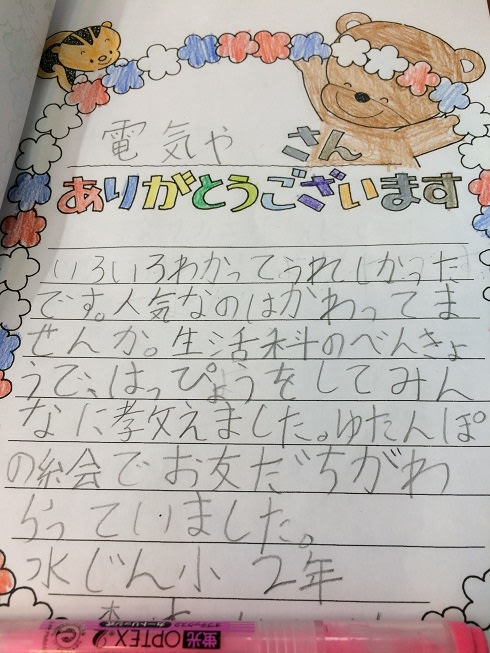 電気やさん
ありがとうございます
いろいろわかってうれしかった
です。人気なのはかわってま
せんか。生活科のべんきょ
うで、はっぴょうをしてみん
なに教えました。ゆたんぽ
の絵会でお友だちがわ
らっていました。
水じん小 2年
蛍光 OPTEX 2